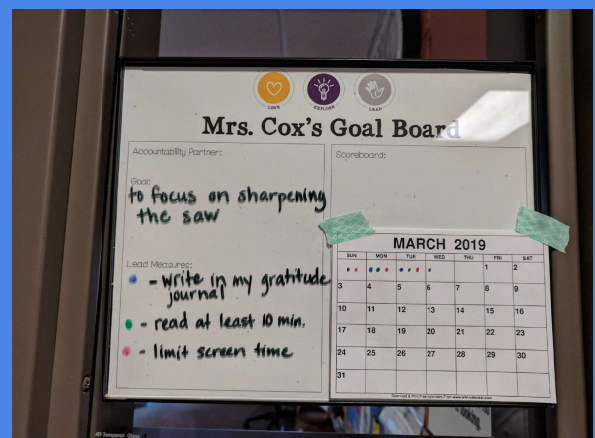 LOVE EXPLORE LEAD
Mrs. Cox's Goal Board
Accountability Partner:
Goal:
to focus on sharpening
the saw
Lead Measures:
- write in my gratitude
journal
- read at least 10 min.
- limit screen time
Scoreboard:
MARCH 2019
SUN MON TUE WED THU FRI SAT
1 2
3 4 5 6 7 8 9
10 11 12 13 14 15 16
17 18 19 20 21 22 23
24 25 26 27 28 29 30
31